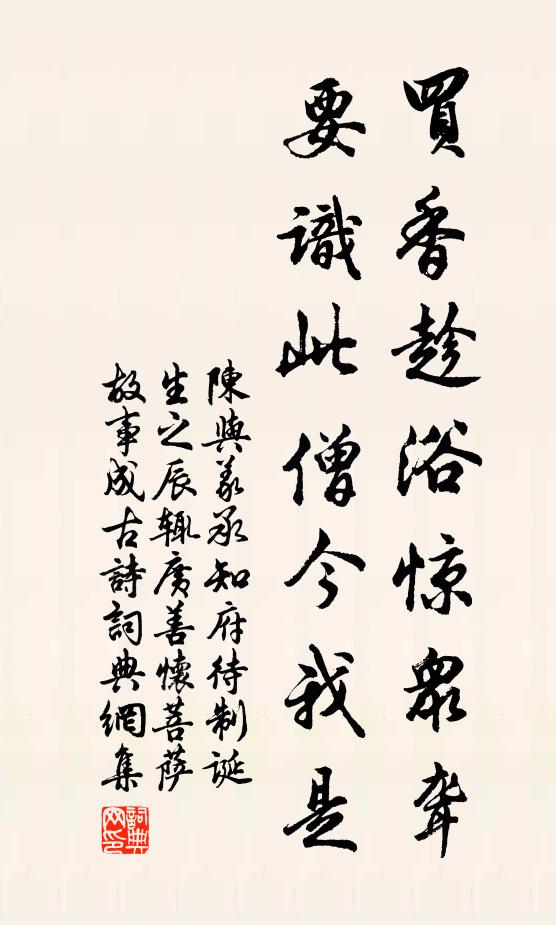 買香趁浴惊衆聋
要識此僧今我是
陳與義承知府待制誕
生之辰辄廣善懷菩萨
故事成古詩詞典網集
詞典网印